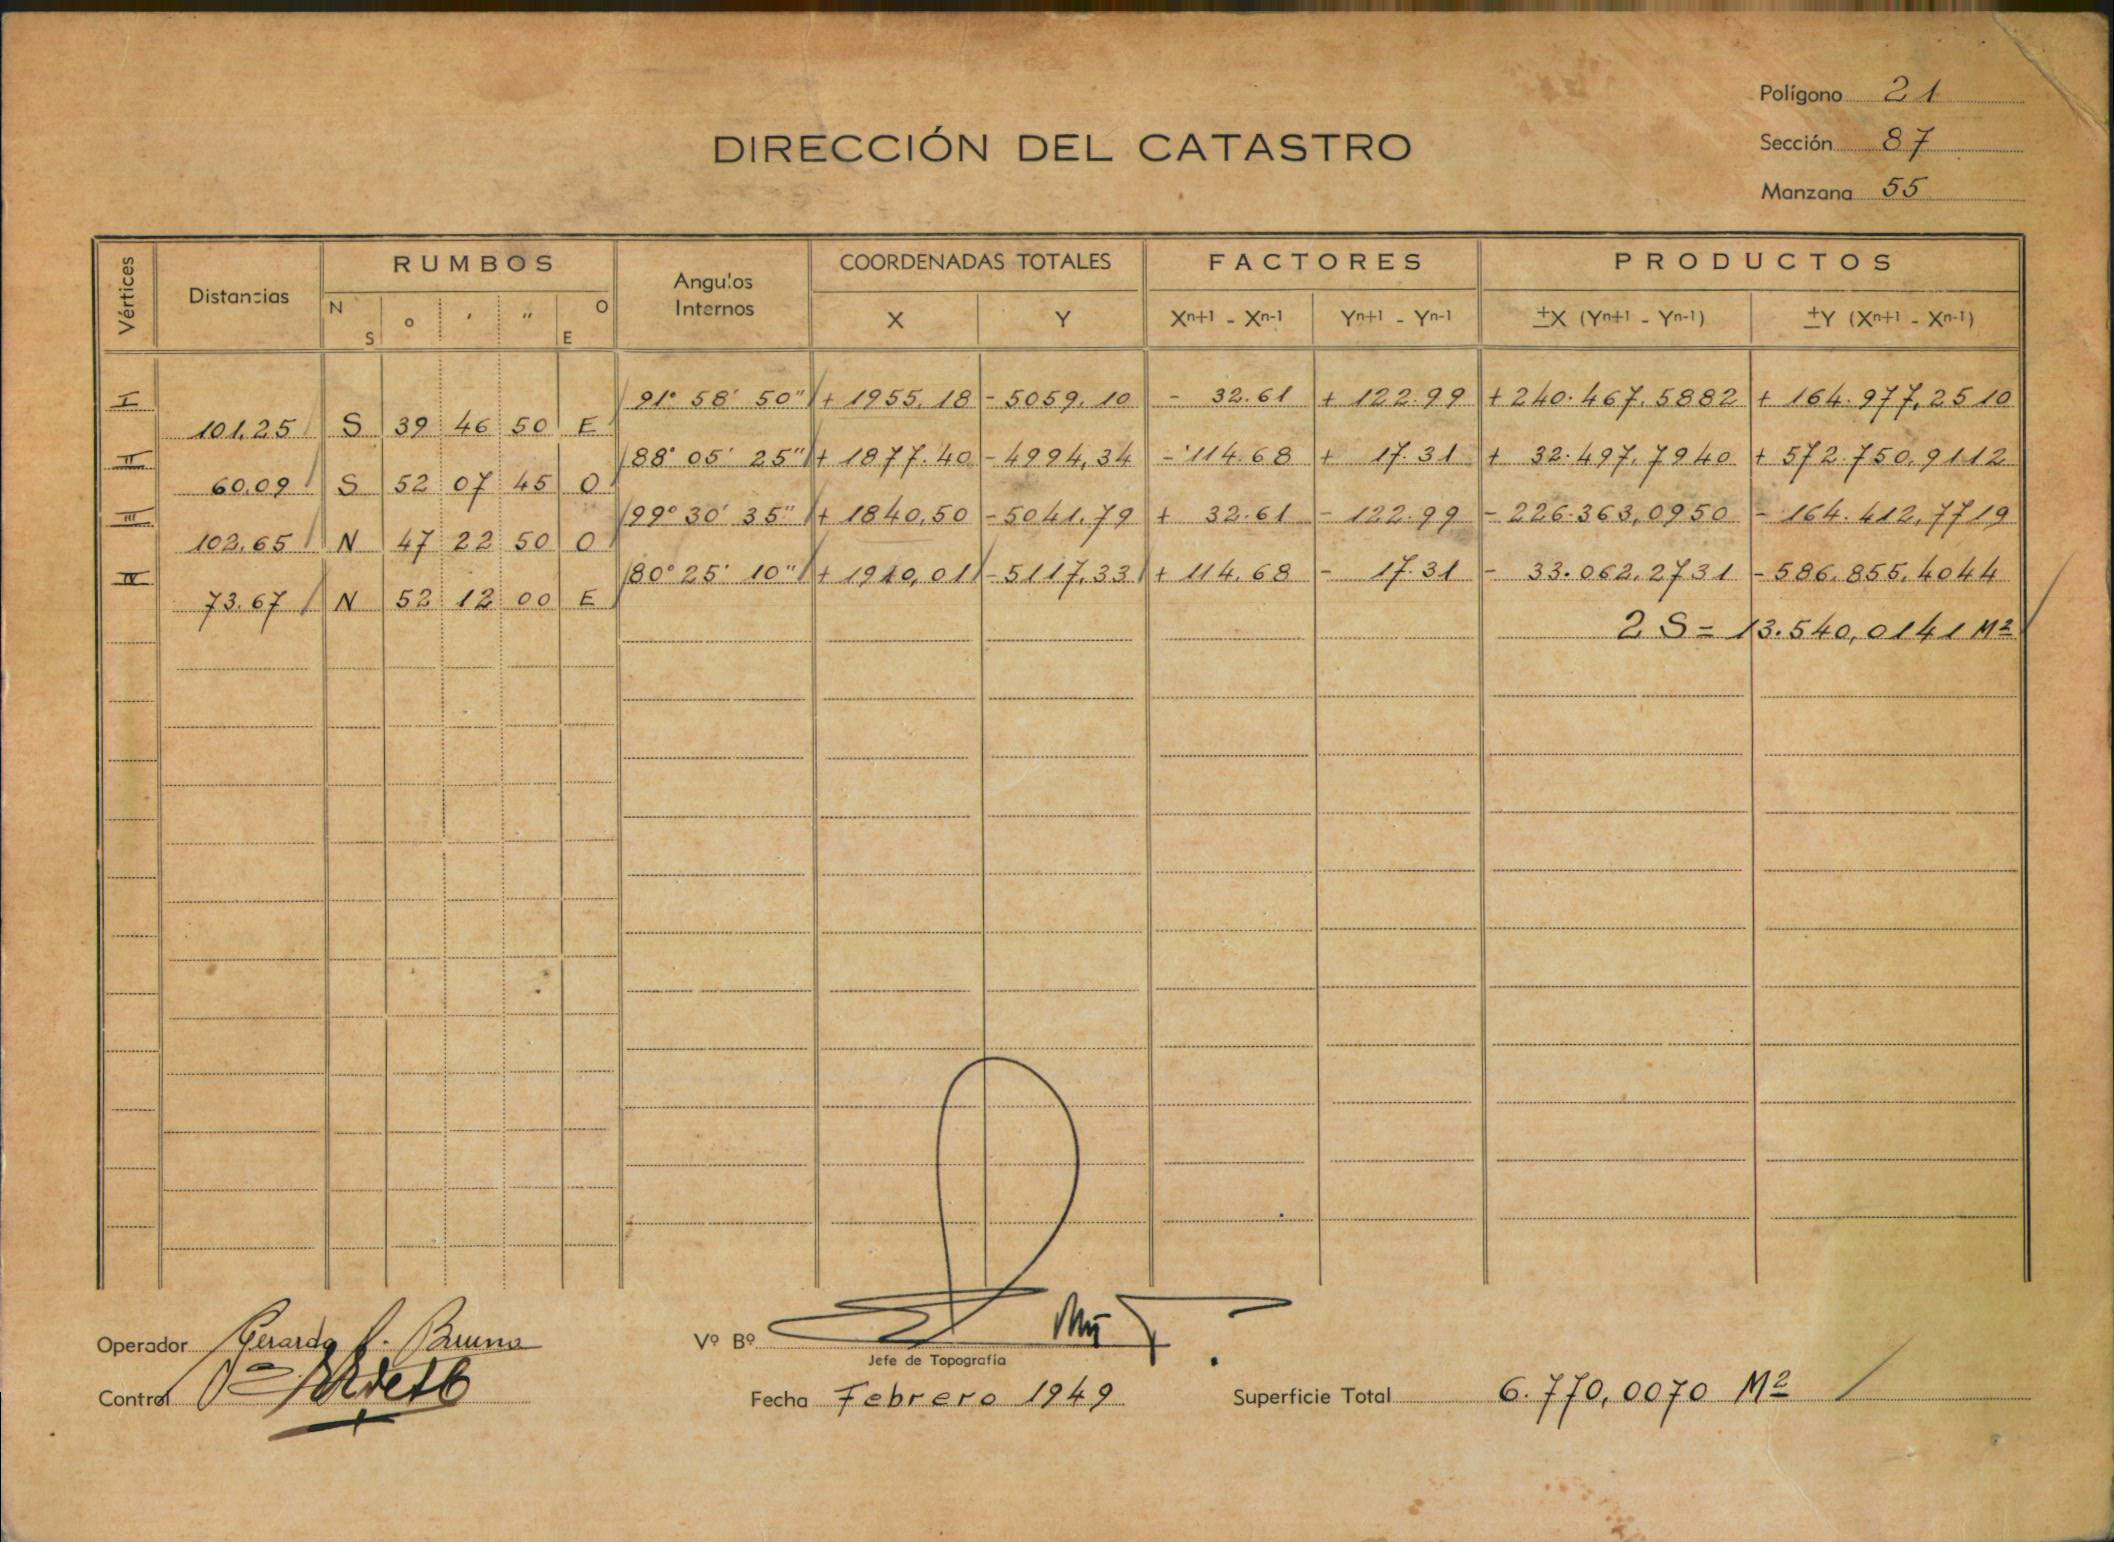 Polígono 21
DIRECCIÓN DEL CATASTRO
Sección 87
Manzana 55
Vértices Distancias RUMBOS Angulos Internos COORDENADAS TOTALES FACTORES PRODUCTOS
N S o ' " O E X Y Xn+1 - Xn-1 Yn+1 - Yn-1 ±X (Yn+1 - Yn-1) ±Y (Xn+1 - Xn-1)
I 91° 58' 50" + 1955,18 - 5059,10 - 32.61 + 122.99 + 240.467,5882 + 164.977,2510
101,25 S 39 46 50 E
II 88° 05' 25" + 1877.40 - 4994,34 - 114.68 + 17.31 + 32.497,7940 + 572.750,9112
60,09 S 52 07 45 O
III 99° 30' 35" + 1840,50 - 5041,79 + 32.61 - 122.99 - 226.363,0950 - 164.412,7719
102,65 N 47 22 50 O
IV 80° 25' 10" + 1910,01 - 5117,33 + 114.68 - 17.31 - 33.062,2731 - 586.855,4044
73.67 N 52 12 00 E
2 S = 13.540,0141 M2
Operador Gerardo Bruno
Vº Bº
Jefe de Topografía
Control
Fecha Febrero 1949
Superficie Total 6.770,0070 M2